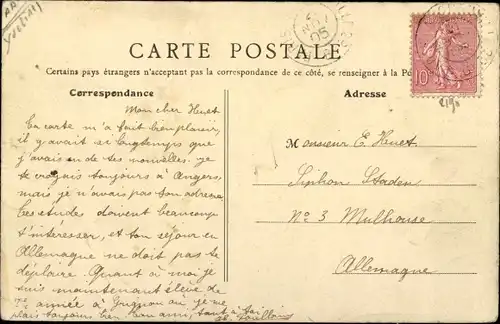 CARTE POSTALE
Certains pays étrangers n'acceptant pas la correspondance de ce côté, se renseigner à la
Correspondance
Adresse
Mon cher Huet
Ta carte m'a fait bien plaisir,
il y avait si longtemps que
j'avais eu de tes nouvelles. je
te croyais toujours à Angers,
mais je n'avais pas ton adresse
Tes études doivent beaucoup
t'intéresser, et ton séjour en
Allemagne ne doit pas te
déplaire. Quant à moi je
suis maintenant élève de
2me année à Grignon où je me
plais toujours bien. Ton ami, tout à toi
Monsieur E. Huet
Siphon Staden
No 3 Mulhouse
Allemagne
10
05